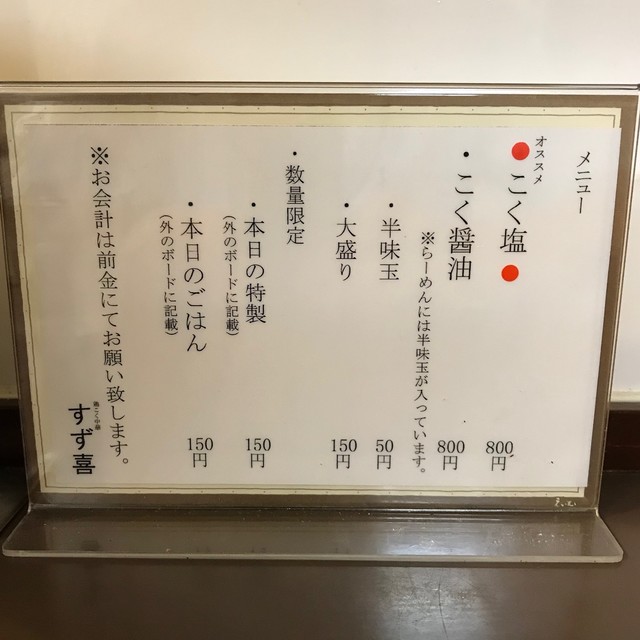 メニュー
オススメ
●こく塩●
800円
・こく醤油
800円
※らーめんには半味玉が入っています。
・半味玉
50円
・大盛り
150円
・数量限定
・本日の特製
150円
(外のボードに記載)
・本日のごはん
150円
(外のボードに記載)
※お会計は前金にてお願い致します。
鶏こく中華
すず喜